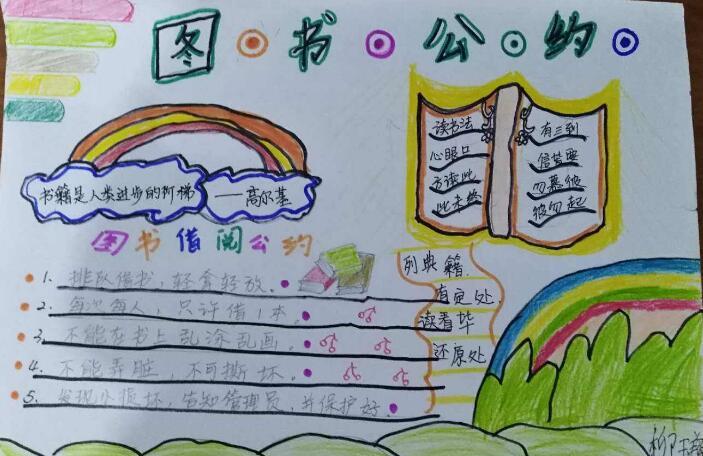 图书公约
书籍是人类进步的阶梯
——高尔基
读书法
心眼口
方读此
此未终
有三到
信皆要
勿慕彼
彼勿起
图书借阅公约
1. 排队借书，轻拿轻放。
2. 每次每人，只许借1本。
3. 不能在书上乱涂乱画。
4. 不能弄脏，不可撕坏。
5. 发现小损坏，告知管理员，并保护好。
列典籍
有定处
读看毕
还原处